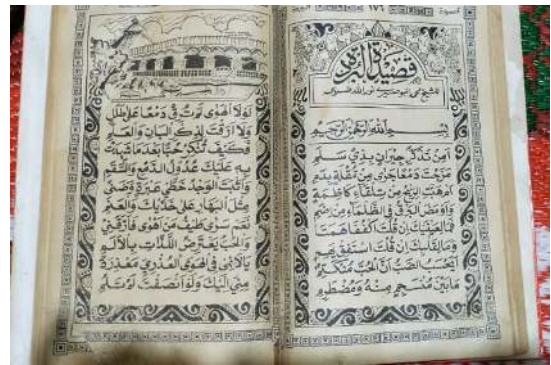 قصيدة ١٧٦
قَصِيدَةُ الْبُرْدَة
بِسْمِ اللهِ الرَّحْمٰنِ الرَّحِيمِ
أَمِنْ تَذَكُّرِ جِيرَانٍ بِذِي سَلَمٍ
مَزَجْتَ دَمْعًا جَرَى مِنْ مُقْلَةٍ بِدَمٍ
أَمْ هَبَّتِ الرِّيحُ مِنْ تِلْقَاءِ كَاظِمَةٍ
وَأَوْمَضَ الْبَرْقُ فِي الظَّلْمَاءِ مِنْ إِضَمٍ
فَمَا لِعَيْنَيْكَ إِنْ قُلْتَ اكْفُفَا هَمَتَا
وَمَا لِقَلْبِكَ إِنْ قُلْتَ اسْتَفِقْ يَهِمِ
أَيَحْسَبُ الصَّبُّ أَنَّ الْحُبَّ مُنْكَتِمٌ
مَا بَيْنَ مُنْسَجِمٍ مِنْهُ وَمُضْطَرِمِ
لَوْلَا الْهَوَى لَمْ تُرِقْ دَمْعًا عَلَى طَلَلٍ
وَلَا أَرِقْتَ لِذِكْرِ الْبَانِ وَالْعَلَمِ
فَكَيْفَ تُنْكِرُ حُبًّا بَعْدَ مَا شَهِدَتْ
بِهِ عَلَيْكَ عُدُولُ الدَّمْعِ وَالسَّقَمِ
وَأَثْبَتَ الْوَجْدُ خَطَّيْ عَبْرَةٍ وَضَنًى
مِثْلَ الْبَهَارِ عَلَى خَدَّيْكَ وَالْعَنَمِ
نَعَمْ سَرَى طَيْفُ مَنْ أَهْوَى فَأَرَّقَنِي
وَالْحُبُّ يَعْتَرِضُ اللَّذَّاتِ بِالْأَلَمِ
يَا لَائِمِي فِي الْهَوَى الْعُذْرِيِّ مَعْذِرَةً
مِنِّي إِلَيْكَ وَلَوْ أَنْصَفْتَ لَمْ تَلُمِ